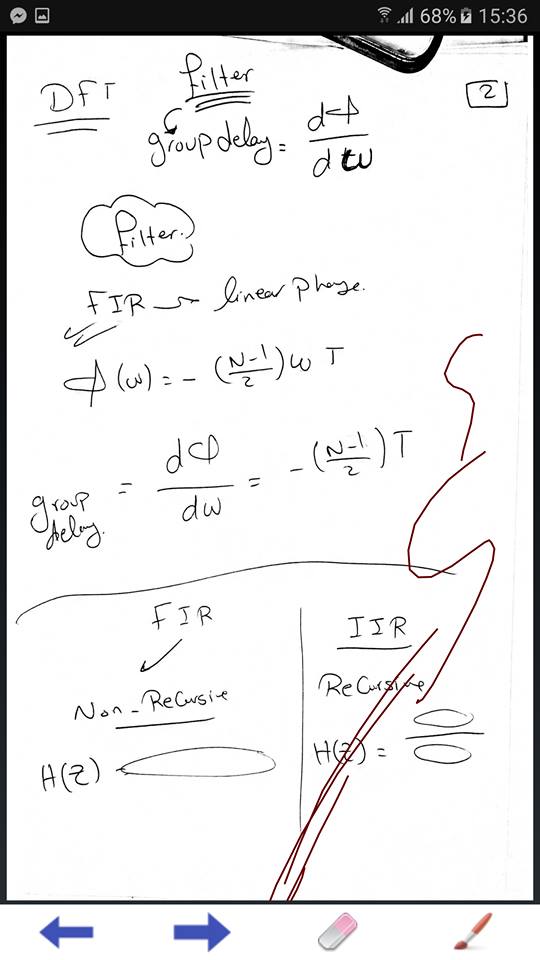 68% 15:36
DFT Filter 2
group delay = dΦ/dω
Filter.
FIR → linear phase.
Φ(ω) = - (N-1/2) ω T
group delay. = dΦ/dω = - (N-1/2) T
FIR
Non-Recursive
H(Z)
IIR
Recursive
H(Z) =